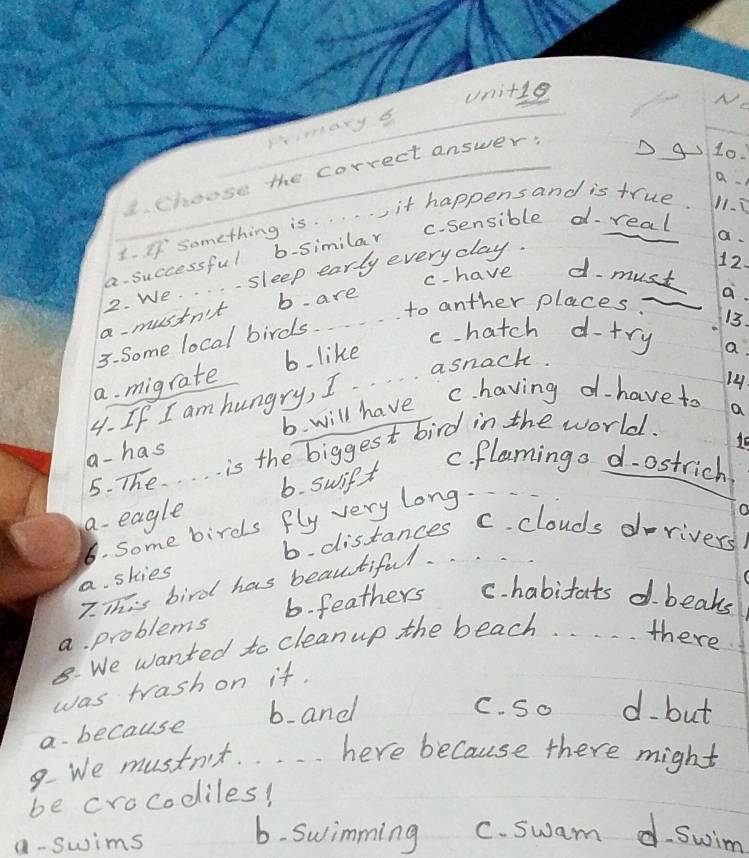 Primary 6 Unit 10
1. Choose the correct answer:
1- If something is ....., it happens and is true.
a- successful b- similar c. sensible d- real
2. We ..... sleep early every day.
a- mustn't b- are c- have d- must
3- Some local birds ..... to anther places.
a. migrate b. like c- hatch d- try
4. If I am hungry, I ..... asnack.
a- has b- will have c. having d- have to
5- The ..... is the biggest bird in the world.
a- eagle b. swift c. flamingo d- ostrich
6. Some birds fly very long .....
a. skies b- distances c. clouds d- rivers
7. This bird has beautiful .....
a. problems b- feathers c- habitats d. beaks
8- We wanted to clean up the beach ..... there
was trash on it.
a- because b- and c. so d- but
9- We mustn't ..... here because there might
be crocodiles!
a- swims b- swimming c. swam d. swim
10.
a-
11.
a.
12.
a.
13.
a.
14.
a